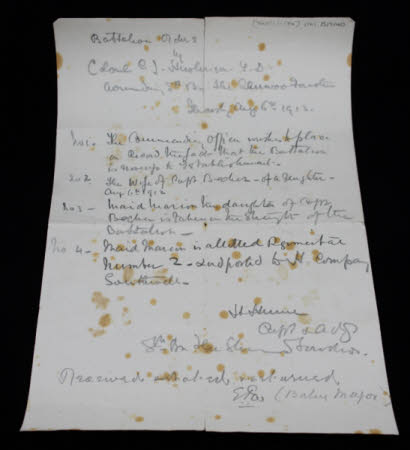 Battalion Orders
by
Colonel C. J.
8th Bn The Sherwood Foresters
Tuesday Aug 6th 1912.
No 1. The Commanding Officer wishes to place
on Record the fact that the Battalion
is now up to Establishment.
No 2. The Wife of Capt Becher - of a daughter -
Aug 6th 1912
No 3 - Maid Marion the daughter of Capt
Becher is taken on the strength of the
Battalion -
No 4 - Maid Marion is allotted Regimental
Number 2 - and posted to H Company
Southwell -
Capt & Adjt
8th Bn The Sherwood Foresters.
Received noted and returned
(Babies Major)